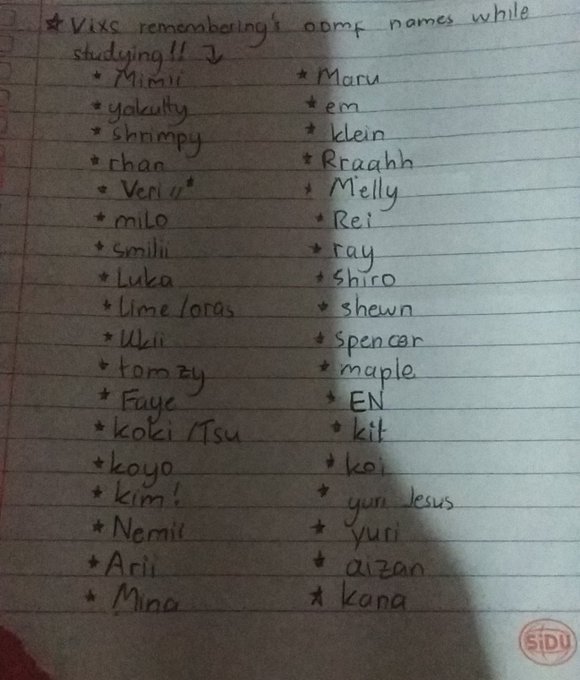 * Vixs remembering's oomf names while
studying!! ↴
* Mimii * Maru
* yakulty * em
* shrimpy * klein
* rhan * Rraahh
* Veri * Melly
* milo * Rei
* smilii * ray
* Luka * Shiro
* Lime/oras * shewn
* Ukii * spencer
* tomzy * maple
* Faye * EN
* koki /Tsu * kit
* koyo * koi
* kim! * yuri Jesus
* Nemii * yuri
* Arii * aizan
* Mina * kana
SiDU